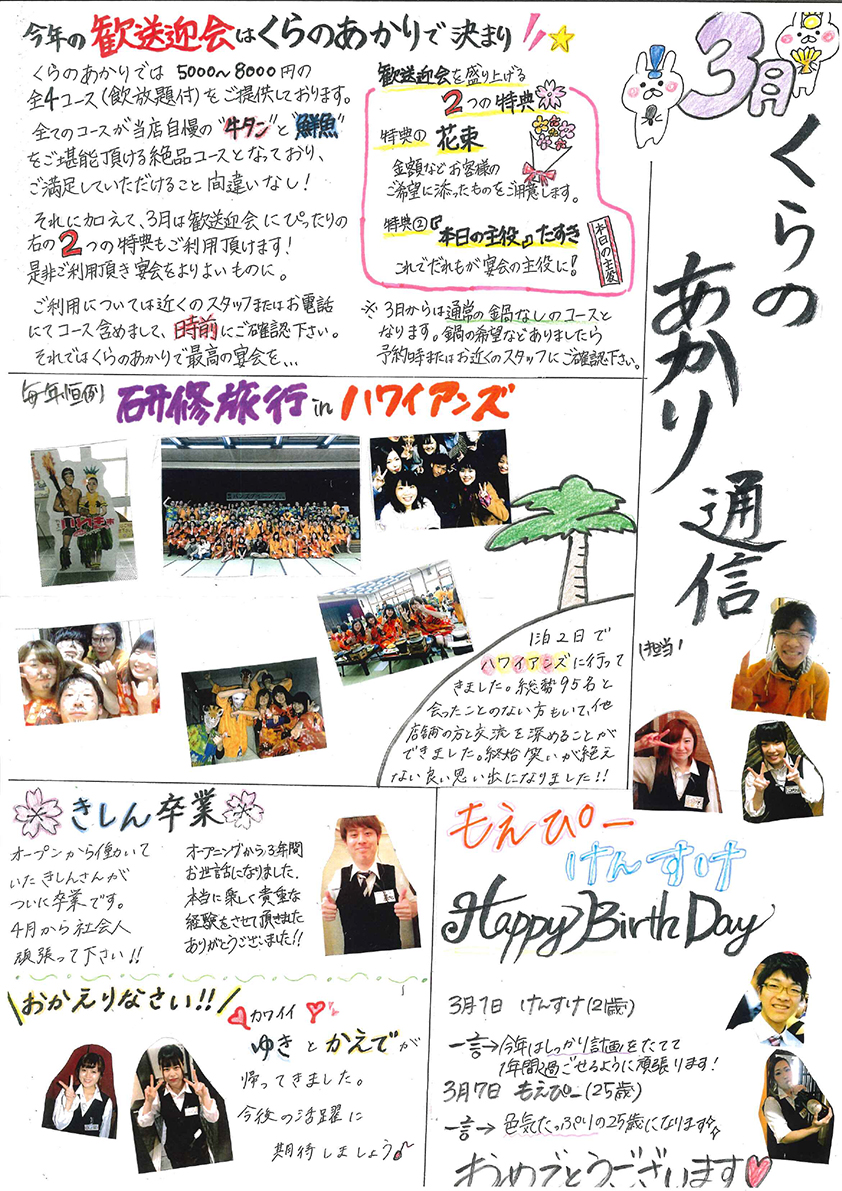 3月
くらの
あかり
通信
担当
今年の歓送迎会はくらのあかりで決まり!!
くらのあかりでは 5000~8000円の
全4コース(飲放題付)をご提供しております。
全てのコースが当店自慢の"牛タン"と"鮮魚"
をご堪能頂ける絶品コースとなっており、
ご満足していただけること間違いなし!
それに加えて、3月は歓送迎会にぴったりの
右の2つの特典もご利用頂けます!
是非ご利用頂き宴会をよりよいものに。
ご利用については近くのスタッフまたはお電話
にてコース含めまして、日時前にご確認下さい。
それではくらのあかりで最高の宴会を、、、
歓送迎会を盛り上げる
2つの特典
特典① 花束
金額などお客様の
ご希望に添ったものをご用意します。
特典②『本日の主役』たすき
これでだれもが宴会の主役に!
本日の主役
※3月からは通常の鍋なしのコースと
なります。鍋の希望などありましたら
予約時またはお近くのスタッフにご確認下さい。
毎年恒例 研修旅行 in ハワイアンズ
1泊2日で
ハワイアンズに行って
きました。総勢95名と
会ったことのない方もいて、他
店舗の方と交流を深めることが
できました。終始笑いが絶え
ない良い思い出になりました!!
きしん卒業
オープンから働いて
いたきしんさんが
ついに卒業です。
4月から社会人
頑張って下さい!!
オープニングから3年間
お世話になりました.
本当に楽しく貴重な
経験をさせて頂きました
ありがとうございました!!
おかえりなさい!!
カワイイ
ゆきとかえでが
帰ってきました。
今後の活躍に
期待しましょう
もえぴー
けんすけ
Happy Birth Day
3月7日 けんすけ(21歳)
一言→今年はしっかり計画をたてて
1年間過ごせるように頑張ります!
3月7日 もえぴー(25歳)
一言→色気たっぷりの25歳になります
おめでとうございます